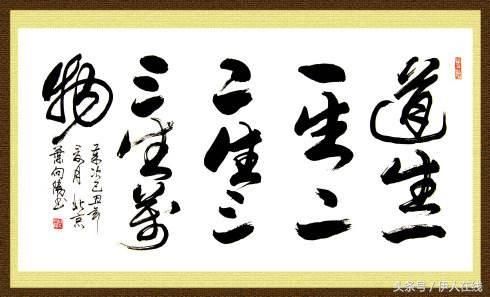 道生一
一生二
二生三
三生萬
物
歲次己丑年
夏月 北京
向陽书
头条号 / 伊人在线